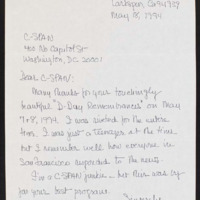 Larkspur, CA 94939
May 18, 1994
C-SPAN
400 No Capitol St
Washington, DC 20001
Dear C-SPAN:
Many thanks for your touchingly
beautiful "D-Day Remembrances" on May
7+8, 1994. I was riveted for the entire
time. I was just a teenager at the time
but I remember well how everyone in
San Francisco responded to the news.
I'm a C-SPAN junkie this was by
far your best program.
Sincerely